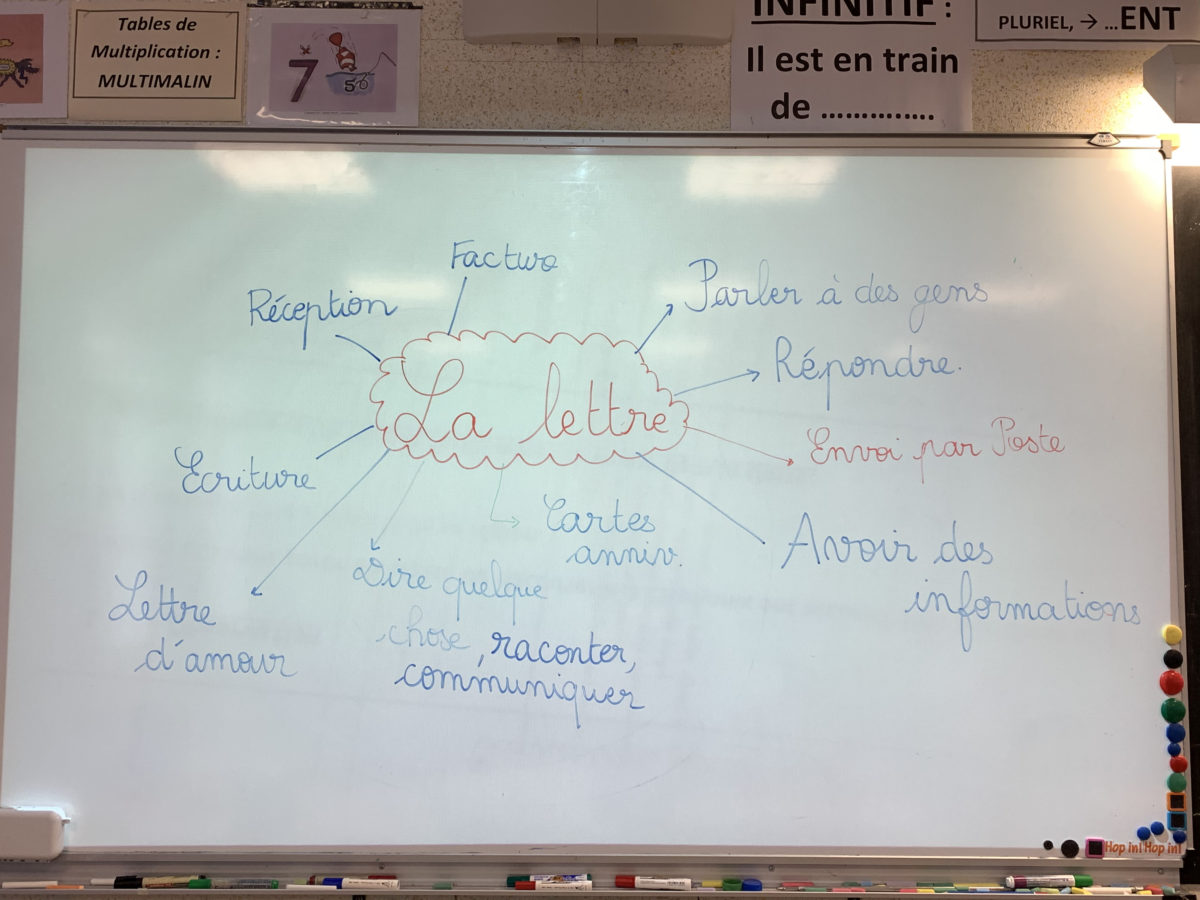 Tables de
Multiplication :
MULTIMALIN
7 × 5
INFINITIF :
Il est en train
de ..............
PLURIEL, → ...ENT
Facture
Réception
Parler à des gens
Répondre.
La lettre
Envoi par Poste
Ecriture
Cartes
anniv.
Avoir des
informations
Dire quelque
chose, raconter,
communiquer
Lettre
d'amour
Hop in! Hop in!